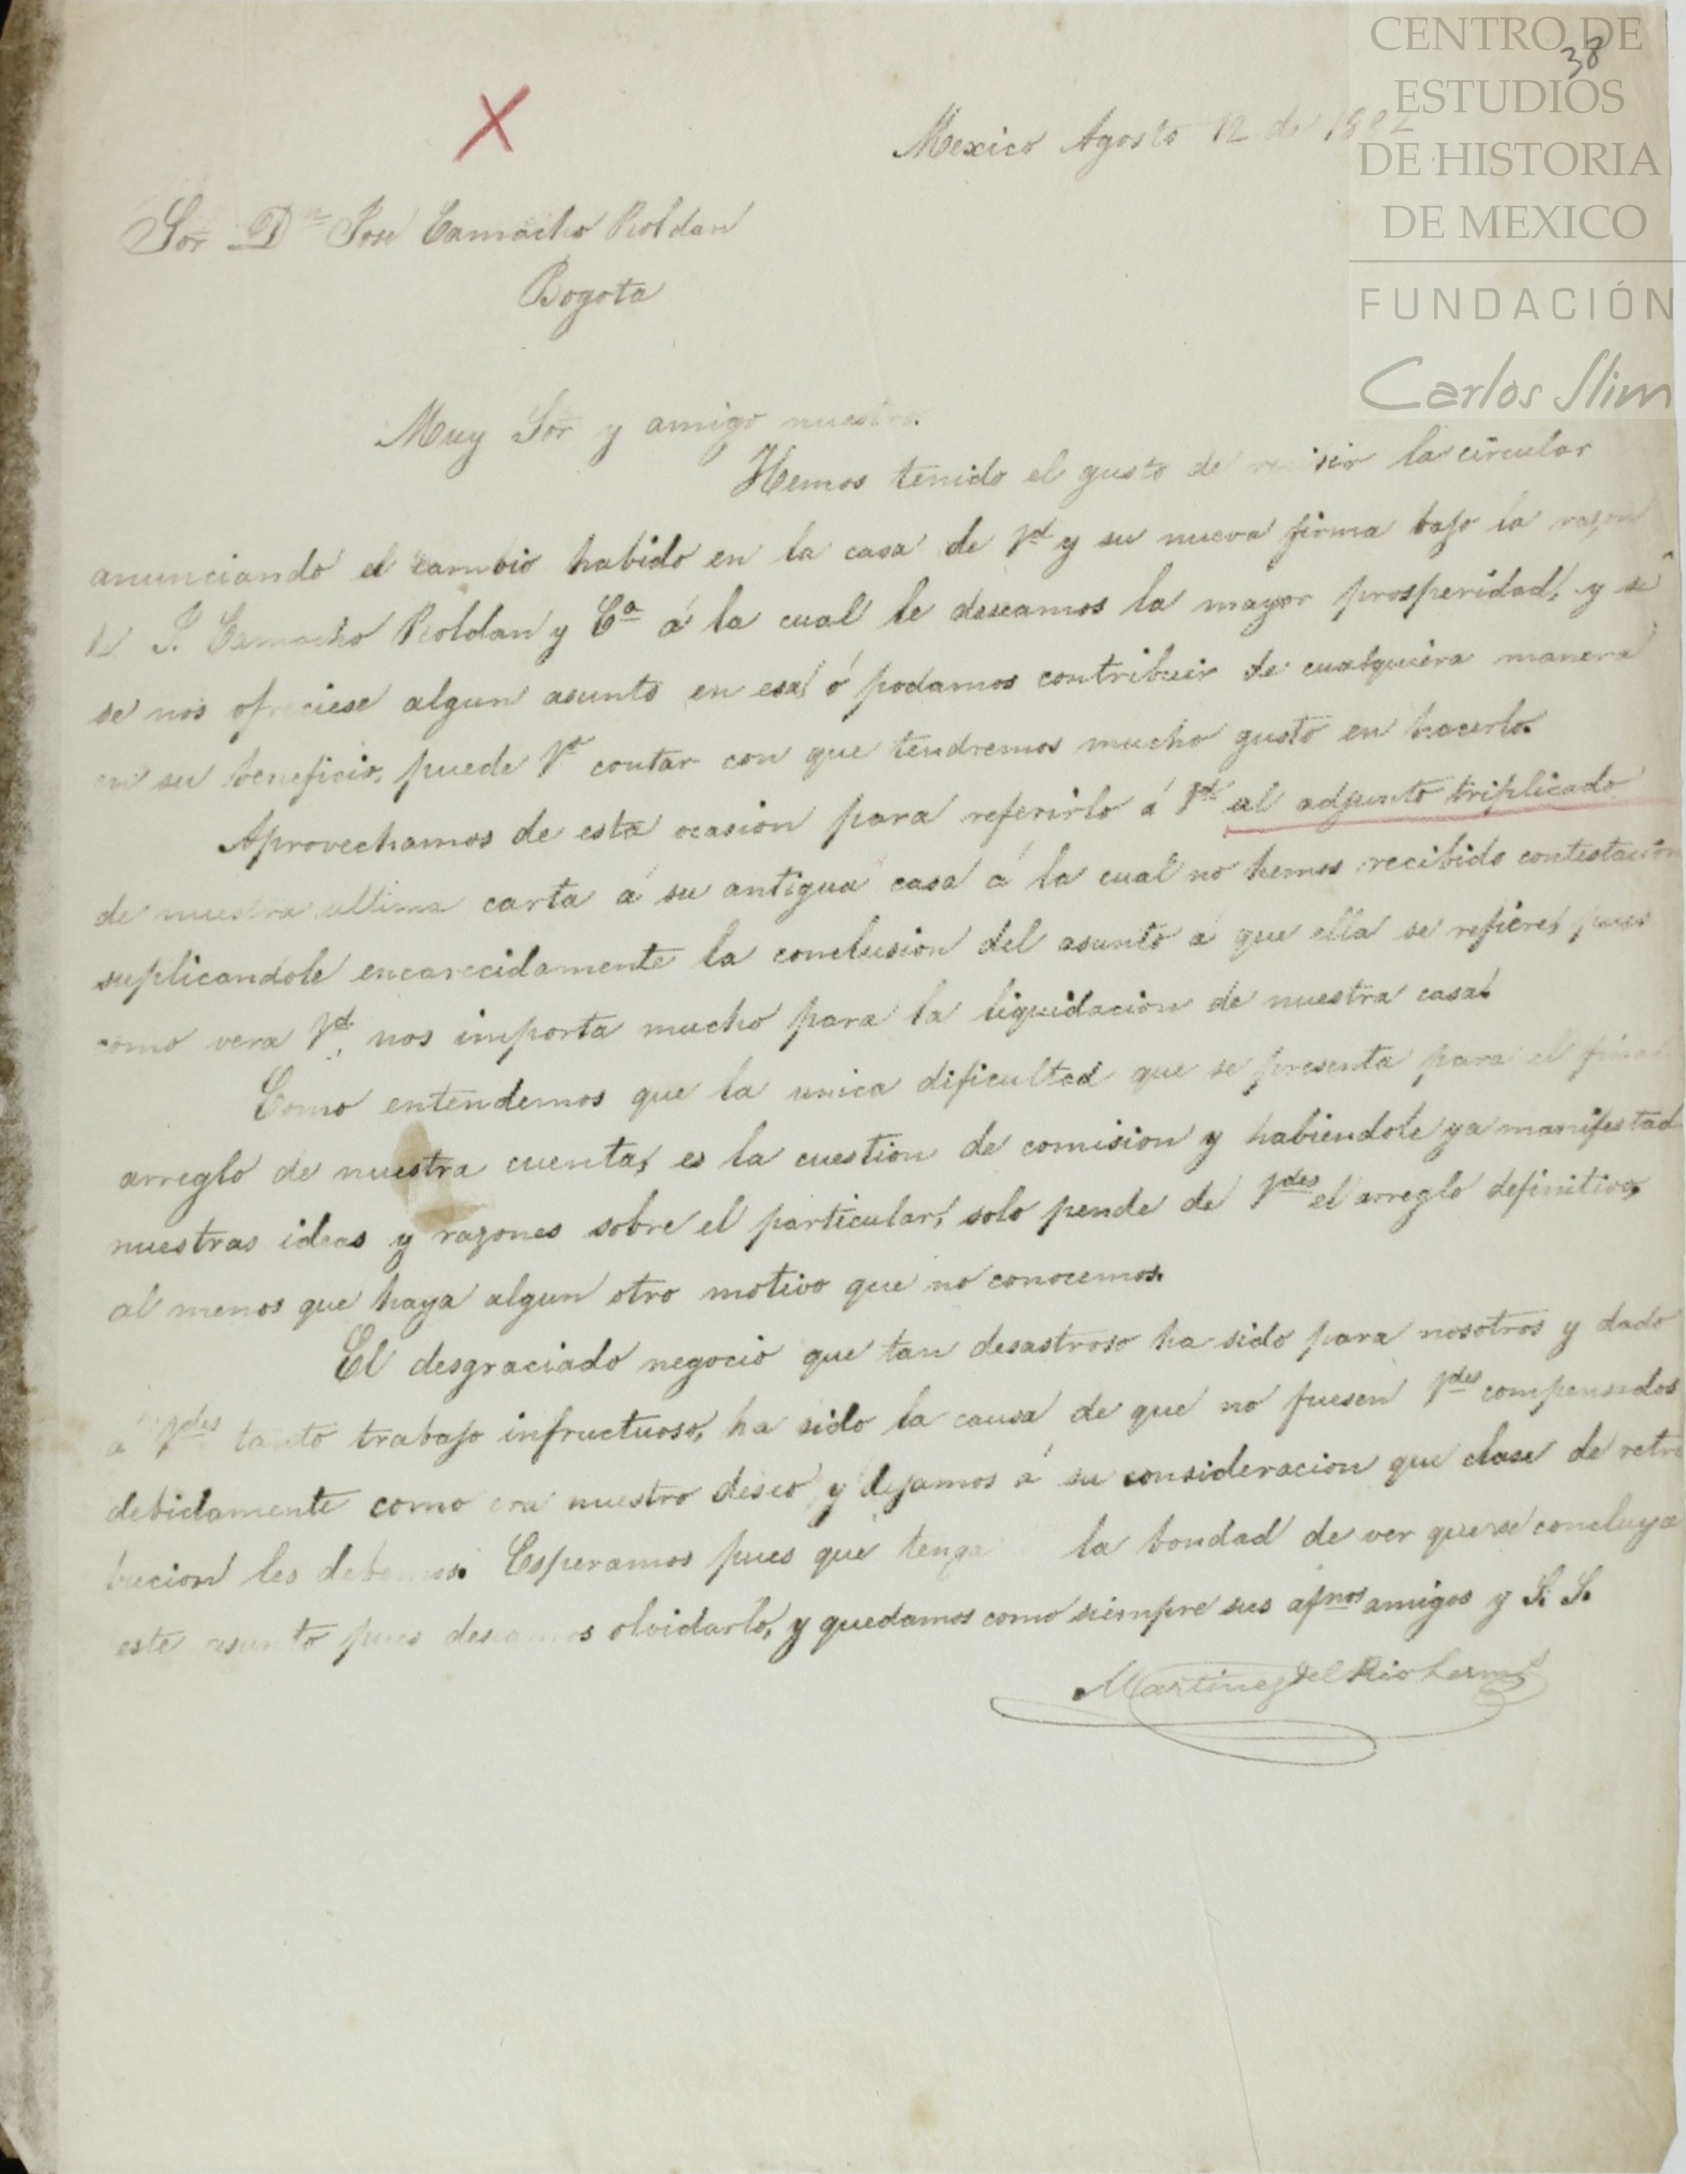 CENTRO DE
ESTUDIOS
DE HISTORIA
DE MEXICO
FUNDACIÓN
Carlos Slim
38
Mexico Agosto 12 de
Sor Dn Jose Camacho Roldan
Bogota
Muy Sor y amigo nuestro.
Hemos tenido el gusto de la circular
anunciando el cambio habido en la casa de Vd y su nueva firma bajo la razon
de J. Camacho Roldan y Ca á la cual le deseamos la mayor prosperidad, y si
se nos ofreciese algun asunto en esa, ó podamos contribuir de cualquiera manera
en su beneficio, puede Vd contar con que tendremos mucho gusto en hacerlo.
Aprovechamos de esta ocasion para referirlo á Vd al adjunto triplicado
de nuestra ultima carta á su antigua casa á la cual no hemos recibido contestacion
suplicandole encarecidamente la conclusion del asunto á que ella se refiere, pues
como vera Vd, nos importa mucho para la liquidacion de nuestra casa.
Como entendemos que la unica dificultad que se presenta para el final
arreglo de nuestra cuenta, es la cuestion de comision y habiendole ya manifestad
nuestras ideas y razones sobre el particular, solo pende de Vdes el arreglo definitivo,
al menos que haya algun otro motivo que no conocemos.
El desgraciado negocio que tan desastroso ha sido para nosotros y dado
á Vdes tanto trabajo infructuoso, ha sido la causa de que no fuesen Vdes compensados
debidamente como era nuestro deseo, y dejamos á su consideracion que clase de retri
bucion les debemos. Esperamos pues que tenga la bondad de ver que se concluya
este asunto pues deseamos olvidarlo, y quedamos como siempre sus afmos amigos y S. S.
Martinez del Rio Hermos